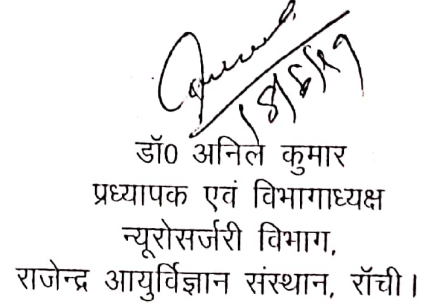 डॉ0 अनिल कुमार
प्रध्यापक एवं विभागाध्यक्ष
न्यूरोसर्जरी विभाग,
राजेन्द्र आयुर्विज्ञान संस्थान, रॉची।